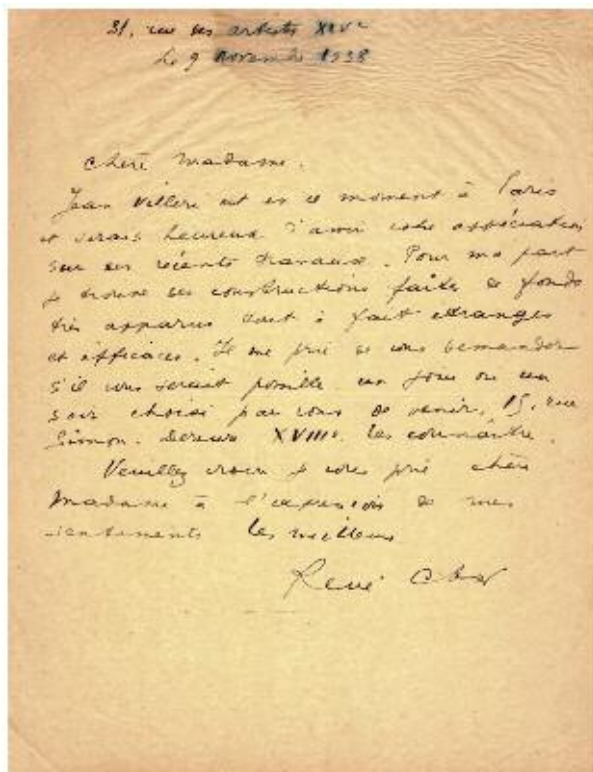 31, rue des artistes XIVe
le 9 novembre 1938
chère Madame.
Jean Villeri est en ce moment à Paris
et serais heureux d'avoir votre appréciation
sur ses récents travaux. Pour ma part
je trouve ses constructions faites de fonds
très apparus tout à fait étranges
et efficaces. Il me prie de vous demander
s'il vous serait possible un jour ou un
soir choisi par vous de venir, 15, rue
Simon. Dereure XVIIIe. les connaître.
Veuillez croire je vous prie chère
Madame à l'expression de mes
sentiments les meilleurs
René Char